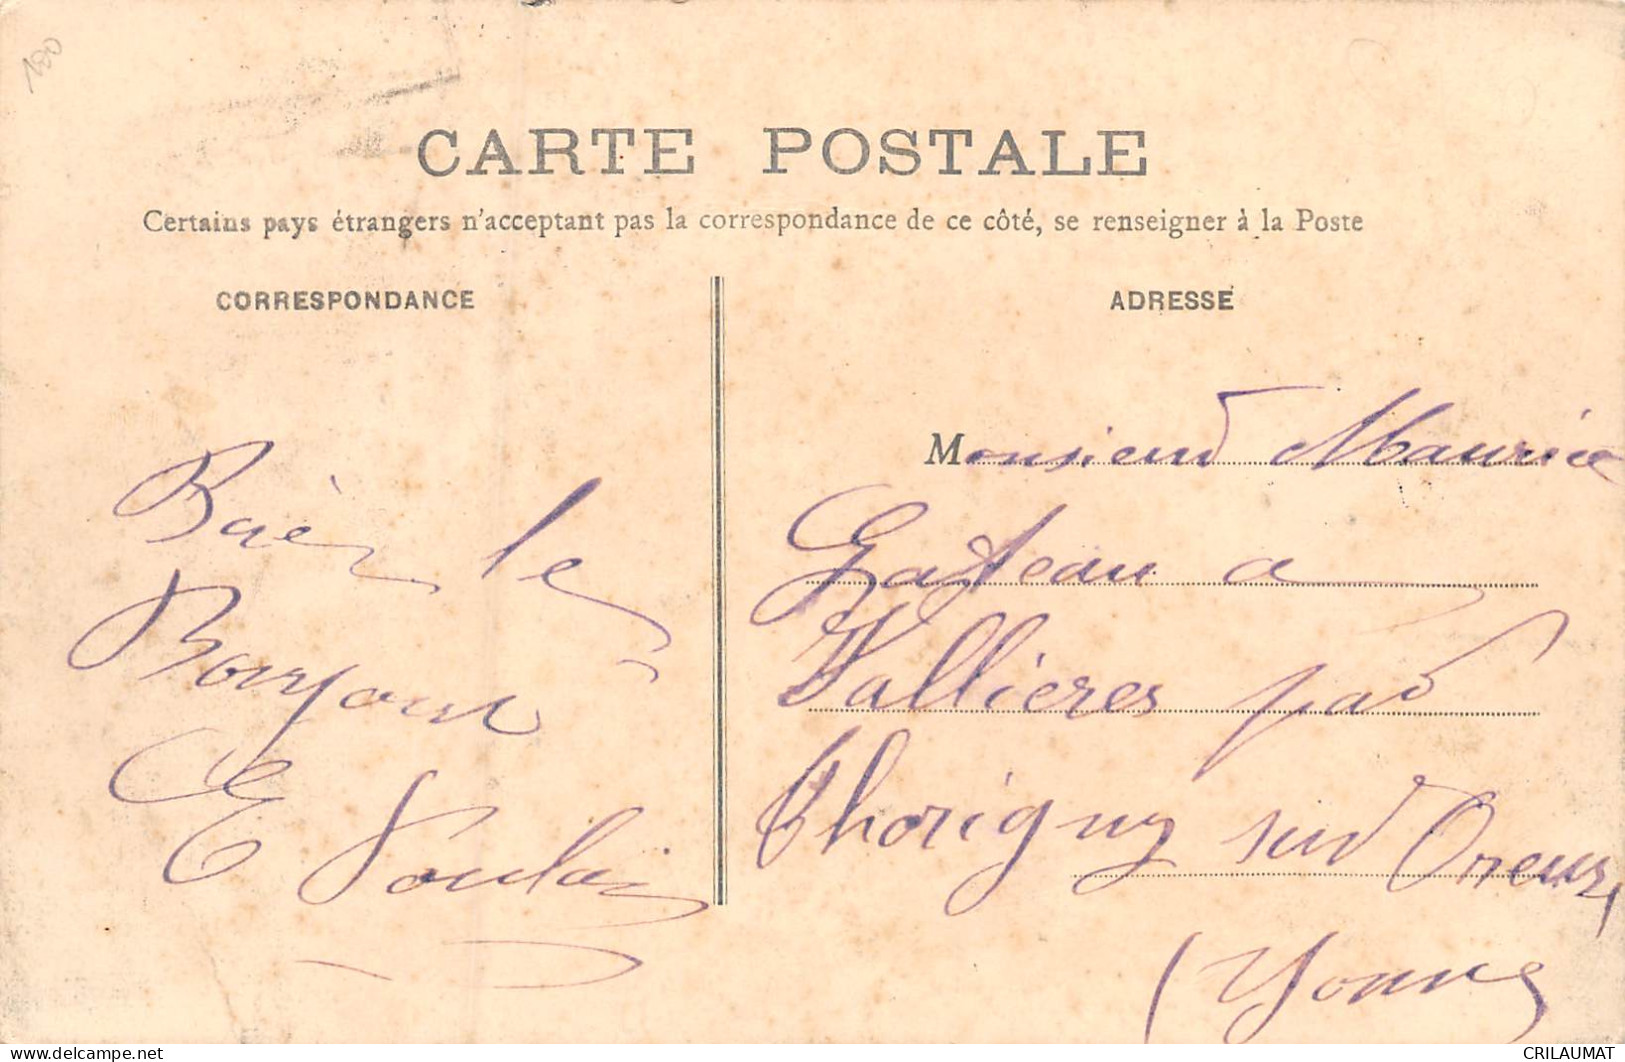 180
CARTE POSTALE
Certains pays étrangers n'acceptant pas la correspondance de ce côté, se renseigner à la Poste
CORRESPONDANCE
ADRESSE
le
Bonjour
E
Monsieur Maurice
Gateau a
Vallieres par
Thorigny sur Oreuse
(Yonne
www.delcampe.net
CRILAUMAT